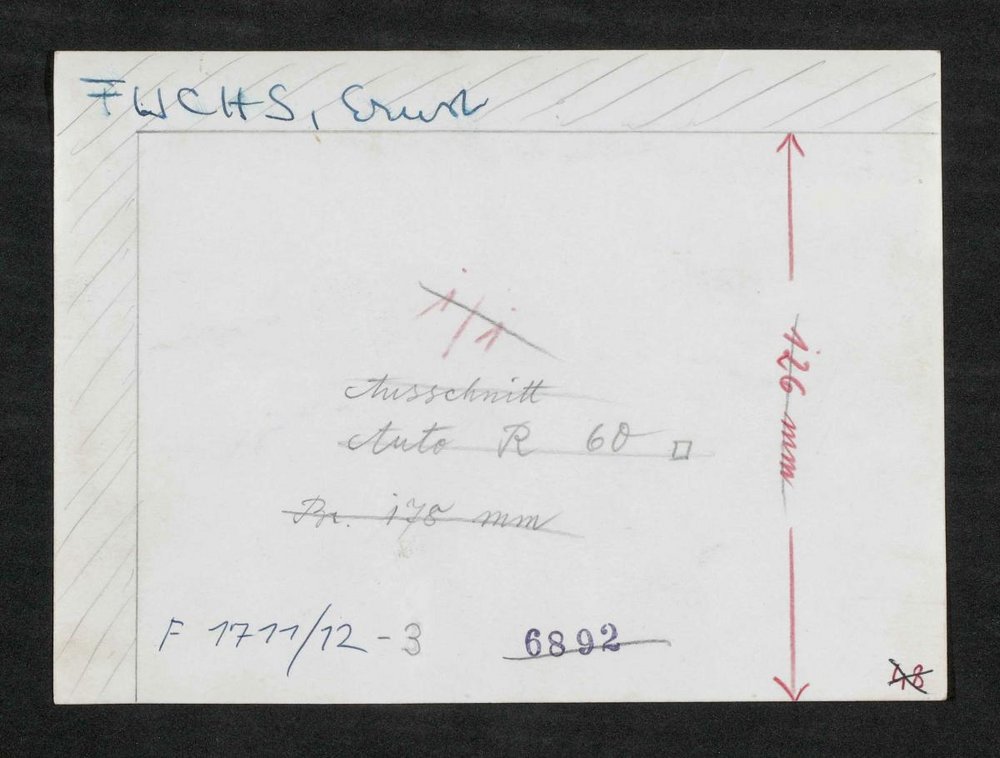 FUCHS, Ernst
1/1
Ausschnitt
Auto R 60 □
Br. 178 mm
126 mm
F 1711/12-3
6892
48